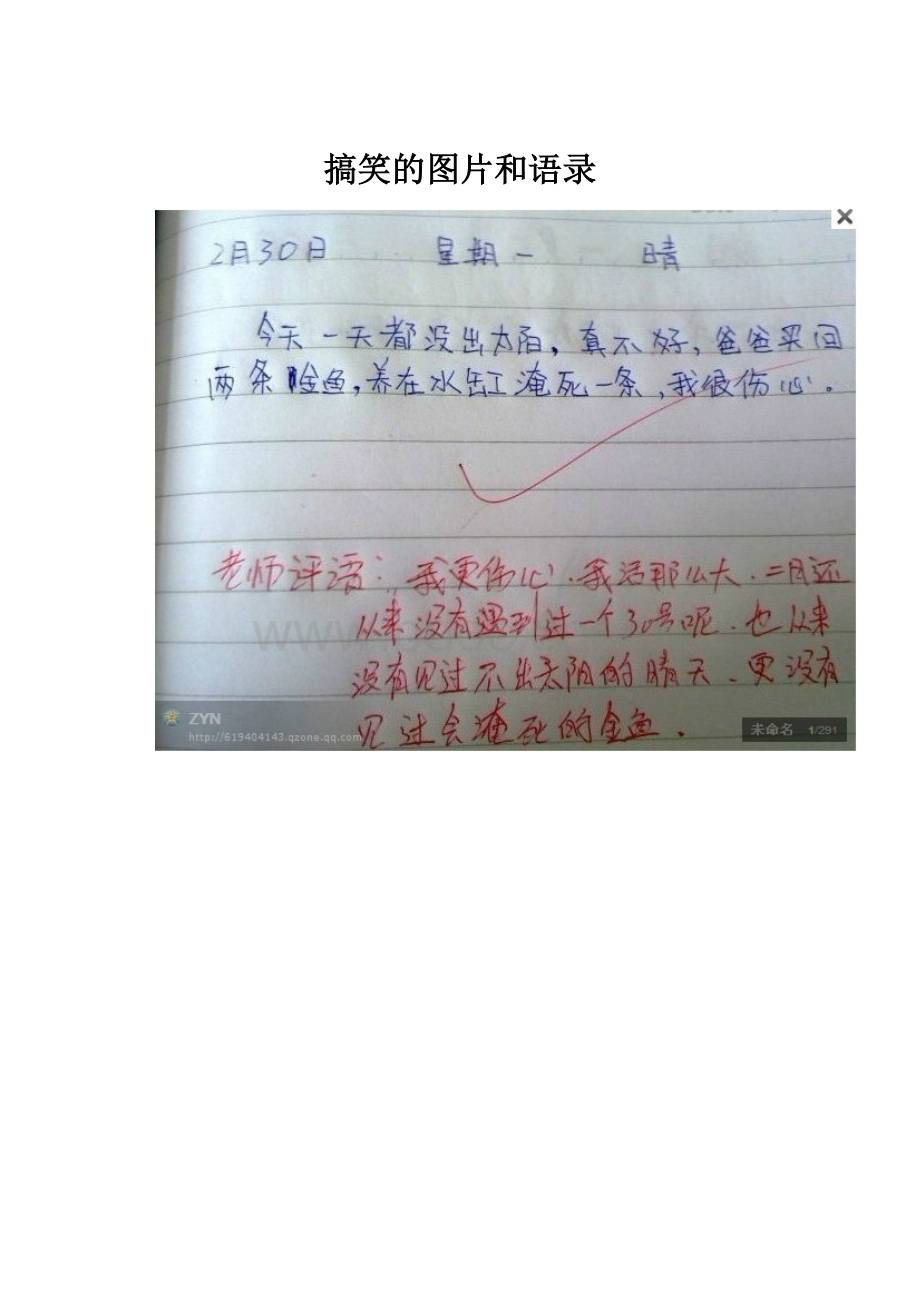 搞笑的图片和语录
2月30日 星期一 晴
今天一天都没出太阳，真不好，爸爸买回
两条金鱼，养在水缸淹死一条，我很伤心。
老师评语：我更伤心.我活那么大.二月还
从来没有遇到过一个30号呢.也从来
没有见过不出太阳的晴天.更没有
见过会淹死的金鱼.
ZYN
http://619404143.qzone.qq.com
未命名 1/291